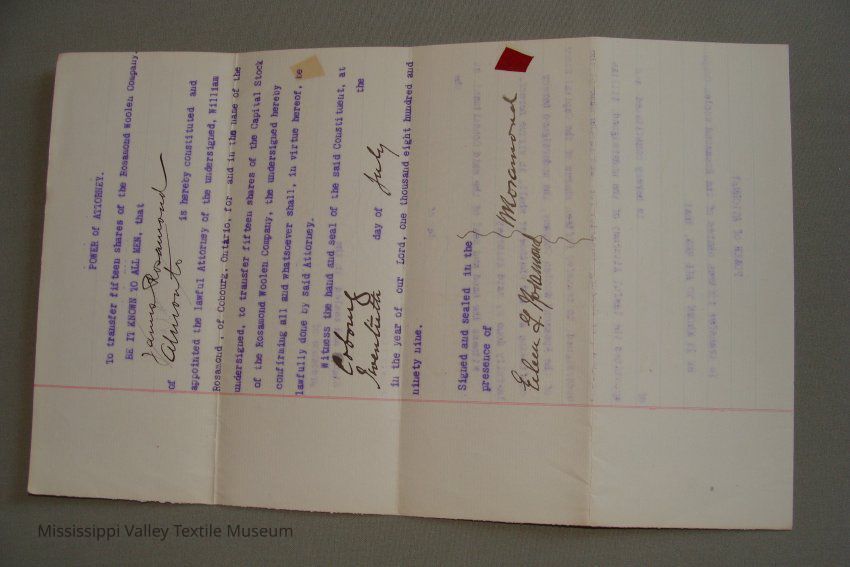 POWER of ATTORNEY.
To transfer fifteen shares of the Rosamond Woolen Company.
BE IT KNOWN TO ALL MEN, that
James Rosamond
of Almonte is hereby constituted and
appointed the lawful Attorney of the undersigned, William
Rosamond , of Cobourg, Ontario, for and in the name of the
undersigned, to transfer fifteen shares of the Capital Stock
of the Rosamond Woolen Company, the undersigned hereby
confirming all and whatsoever shall, in virtue hereof, be
lawfully done by said Attorney.
Witness the hand and seal of the said Constituent, at
Cobourg the
Twentieth day of July
in the year of our Lord, one thousand eight hundred and
ninety nine.
Signed and sealed in the
presence of WRosamond
Eileen G Rosamond
Mississippi Valley Textile Museum